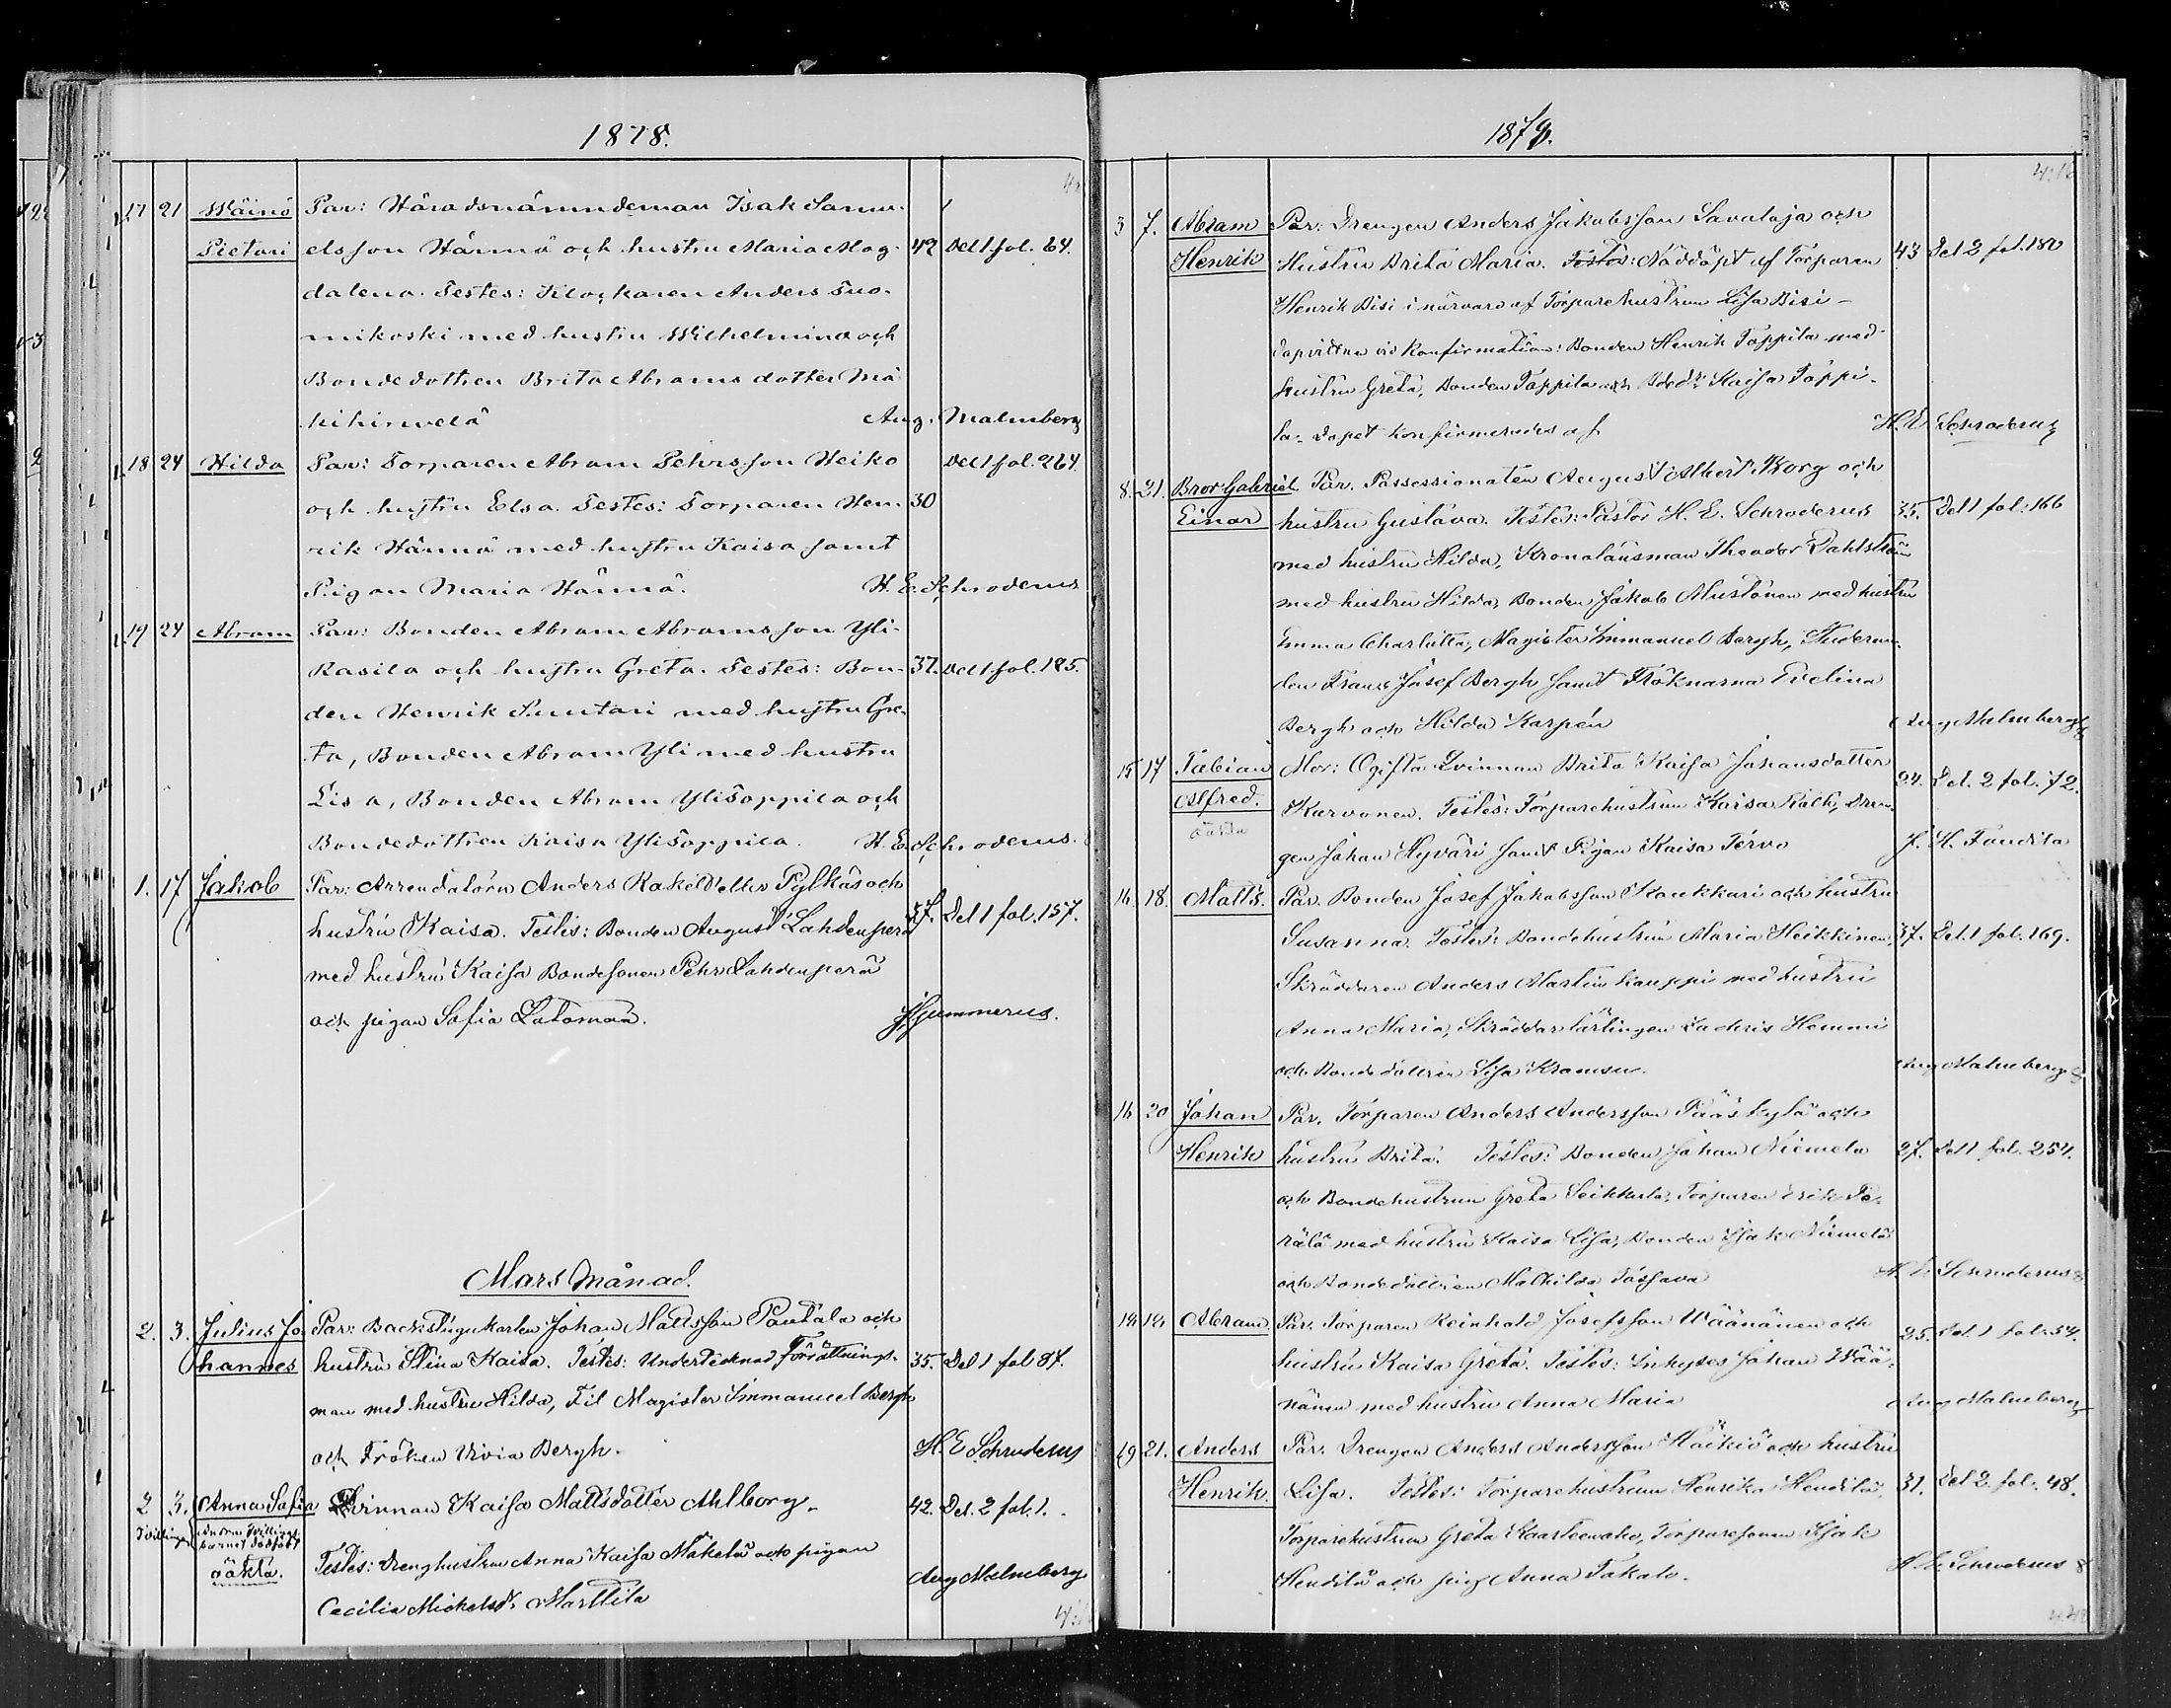 1878.
17 21 Wäinö Par: Häradsnämndeman Isak Samu-
Pietari elsson Hännä och hustru Maria Mag- 42 Del 1 fol. 64.
dalena. Testes: Klockaren Anders Tuo-
mikoski med hustru Wilhelmina och
Bondedottren Brita Abrams dotter Mä-
kihirvelä Aug. Malmberg
18 24 Hilda Par: Torparen Abram Pehrsson Heiko Del 1 fol. 264.
och hustru Elsa. Testes: Torparen Hen- 30
rik Hännä med hustru Kaisa samt
Pigan Maria Hännä. H. E. Schroderus
19 24 Abram Par: Bonden Abram Abramsson Yli-
Rasila och hustru Greta. Testes: Bon- 37. Del 1 fol. 185.
den Henrik Puntari med hustru Gre-
ta, Bonden Abram Yli med hustru
Lisa, Bonden Abram YliToppila och
Bondedottren Kaisa YliToppila. H. E. Schroderus.
1. 17 Jakob Par: Arrendatorn Anders Rakel eller Pylkäs och
hustru Kaisa. Testes: Bonden August Lahdenperä 37. Del 1 fol. 157.
med hustru Kaisa Bondesonen Pehr Lahdenperä
och pigan Sofia Latomaa. JGummerus.
Mars Månad.
2. 3. Julius Jo Par: Backstugukarlen Johan Mattsson Pantala och
hannes hustru Stina Kaisa. Testes: Undertecknad Förrättnings- 35. Del 1 fol 87.
man med hustru Hilda, Fil Magister Immanuel Bergh
och Fröken Vivia Bergh. H. E Schroderus
2 3. Anna Sofia Qvinnan Kaisa Mattsdotter Ahlborg. 42. Del. 2 fol. 1.
Tvilling andra tvillings
barnet dödfödt
oäkta. Testes: Drenghustrun Anna Kaisa Mäkelä och pigan
Cecilia Michelsdr Marttila Aug Malmberg
1879.
3 7. Abram Par: Drengen Anders Jakobsson Savaloja och
Henrik Hustru Brita Maria. Testes: Nöddöpt af Torparen 43 Del 2 fol. 180
Henrik Bisi i närvaro af Torparehustrun Lisa Bisi –
Dopvittne vid Konfirmation: Bonden Henrik Toppila med
hustru Greta, Bonden Toppila och Bdr Kaisa Toppi-
la. Dopet konfirmerades af H. E Schroderus
8. 21. Bror Gabriel Par. Possessionaten August Albert Korg och
Einar hustru Gustava. Testes: Pastor H. E. Schroderus 35. Del 1 fol. 166
med hustru Hilda, Kronolänsman Theodor Dahlström
med hustru Hilda, Bonden Jakob Mustonen med hustru
Emma Charlotta, Magister Immanuel Bergh, Studeran-
den Frans Josef Bergh samt Fröknarna Evelina
Bergh och Hilda Karpén Aug Malmberg
15 17 Fabian Mor: Ogifta Qvinnan Brita Kaisa Johansdotter 24. Del. 2 fol. 72.
Alfred. Karvonen. Testes: Torparehustrun Kaisa Räth, Dren-
oäkta gen Johan Hyväri samt Pigan Kaisa Tervo J. H. Tundila
16. 18. Matts. Par. Bonden Josef Jakobsson Kaukkari och hustru
Susanna. Testes: Bondehustrun Maria Heikkinen, 37. Del. 1 fol. 169.
Skräddaren Anders Martin Kauppi med hustru
Anna Maria, Skräddarlärlingen Zachris Hemmi
och Bondedottren Lisa Kramsu. Aug Malmberg
16 20 Johan Par. Torparen Anders Andersson Pääskylä och
Henrik hustru Brita. Testes: Bonden Johan Niemelä 27. Del 1 fol. 254.
och Bondehustrun Greta Seikkula, Torparen Erik Pe-
rälä med hustru Kaisa Lisa, Bonden Isak Niemelä
och Bondedottren Mathilda Tossava H. E. Schroderus
18 18 Abram Par. Torparen Reinhold Josefsson Wäänänen och 25. Del. 1 fol. 54.
hustru Kaisa Greta. Testes: Inhyses Johan Wää-
nänen med hustru Anna Maria Aug Malmberg
19 21. Anders Par. Drengen Anders Andersson Häikiö och hustru
Henrik. Lisa. Testes: Torparehustrun Henrika Hendilä, 31. Del 2. fol. 48.
Torparehustrun Greta Kaarteenaho, Torparesonen Isak
Hendilä och pig Anna Takalo. H. E. Schroderus